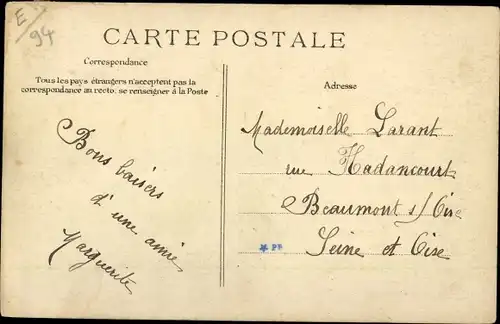 E/94
CARTE POSTALE
Correspondance
Tous les pays étrangers n'acceptent pas la
correspondance au recto: se renseigner à la Poste
Bons baisers
d'une amie
Marguerite
Adresse
Mademoiselle Larant
rue Hadancourt
Beaumont s/ Oise
Seine et Oise
* PF